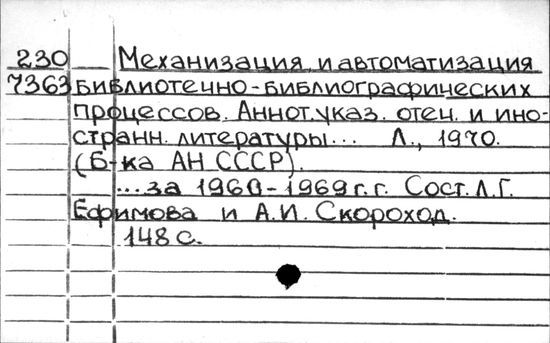 230 Механизация и автоматизация
7363 библиотечно-библиографических
процессов. Аннот. указ. отеч. и ино-
странн. литературы... Л., 1970.
(Б-ка АН СССР).
...за 1960-1969 г.г. Сост. Л.Г.
Ефимова и А.И. Скороход.
148 с.